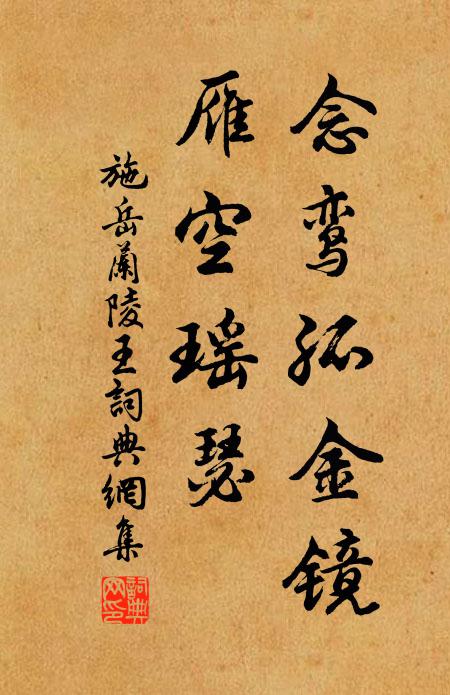 念鸾孤金镜
雁空瑶瑟
施岳蘭陵王詞典網集
詞典
网印